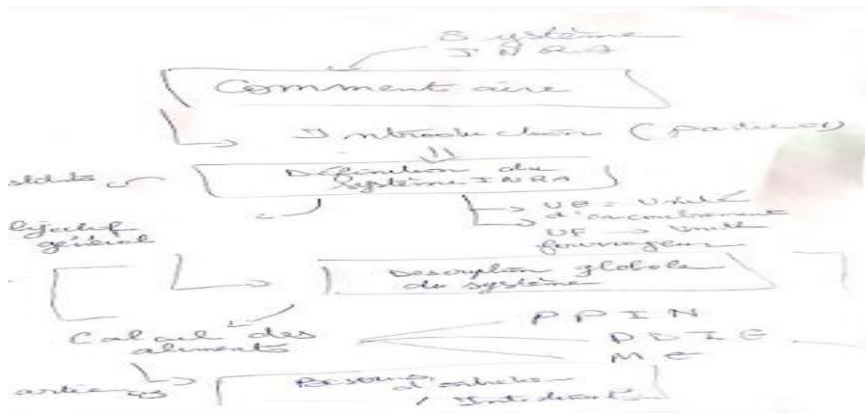 Système
INRA
Commentaire
Introduction (partie 1)
Définition du
système INRA
UE = Unité
d'encombrement
UF → Unité
fourrageur
objectif
général
Description globale
du système
Calcul des
aliments
PPIN
PDIE
ME
Besoins
d'entretien